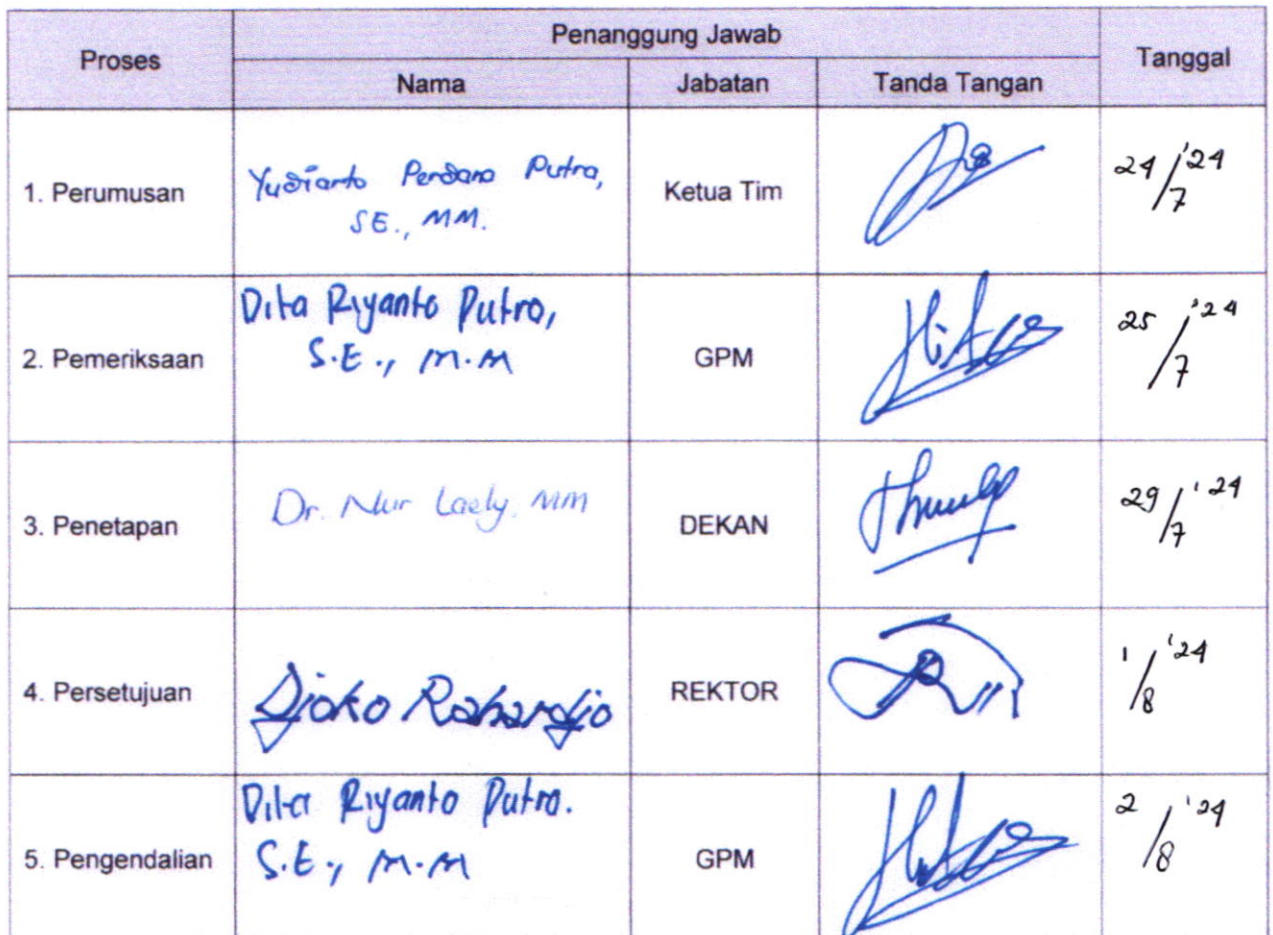 Proses
Penanggung Jawab
Tanggal
Nama
Jabatan
Tanda Tangan
1. Perumusan
Yudianto Perdana Putra,
SE., MM.
Ketua Tim
24/7 '24
2. Pemeriksaan
Dita Riyanto Putro,
S.E., M.M
GPM
25/7 '24
3. Penetapan
Dr. Nur Laely, MM
DEKAN
29/7 '24
4. Persetujuan
Djoko Rahardjo
REKTOR
1/8 '24
5. Pengendalian
Dita Riyanto Putro.
S.E., M.M
GPM
2/8 '24